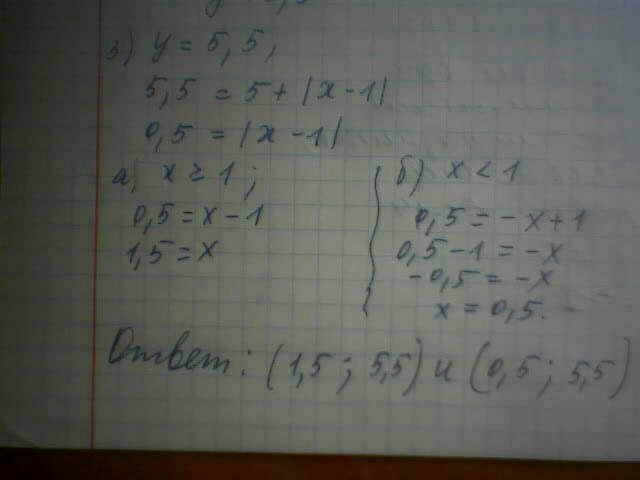 3) y = 5,5;
5,5 = 5 + |x - 1|
0,5 = |x - 1|
а) x ≥ 1;
0,5 = x - 1
1,5 = x
б) x < 1
0,5 = -x + 1
0,5 - 1 = -x
-0,5 = -x
x = 0,5.
Ответ: (1,5; 5,5) и (0,5; 5,5)